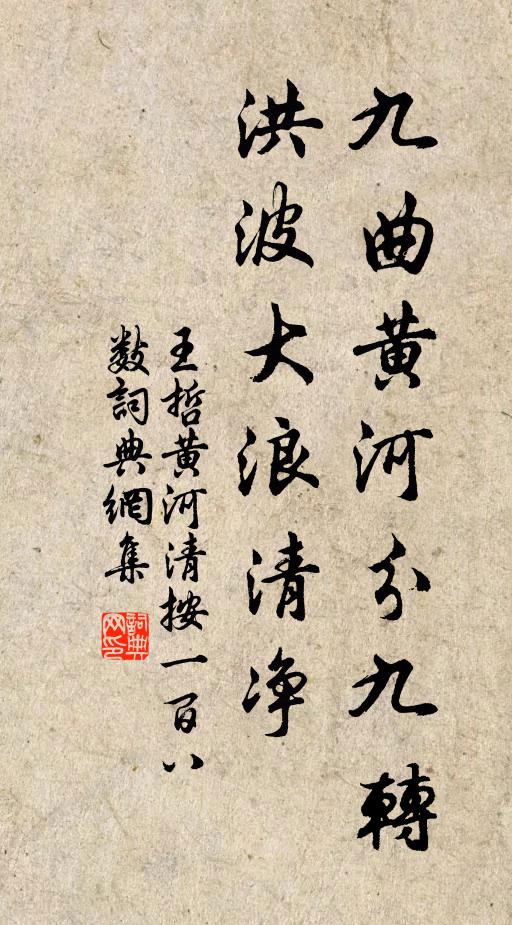 九曲黃河分九轉
洪波大浪清浄
王哲黃河清按一百八
數詞典網集
詞典
网印